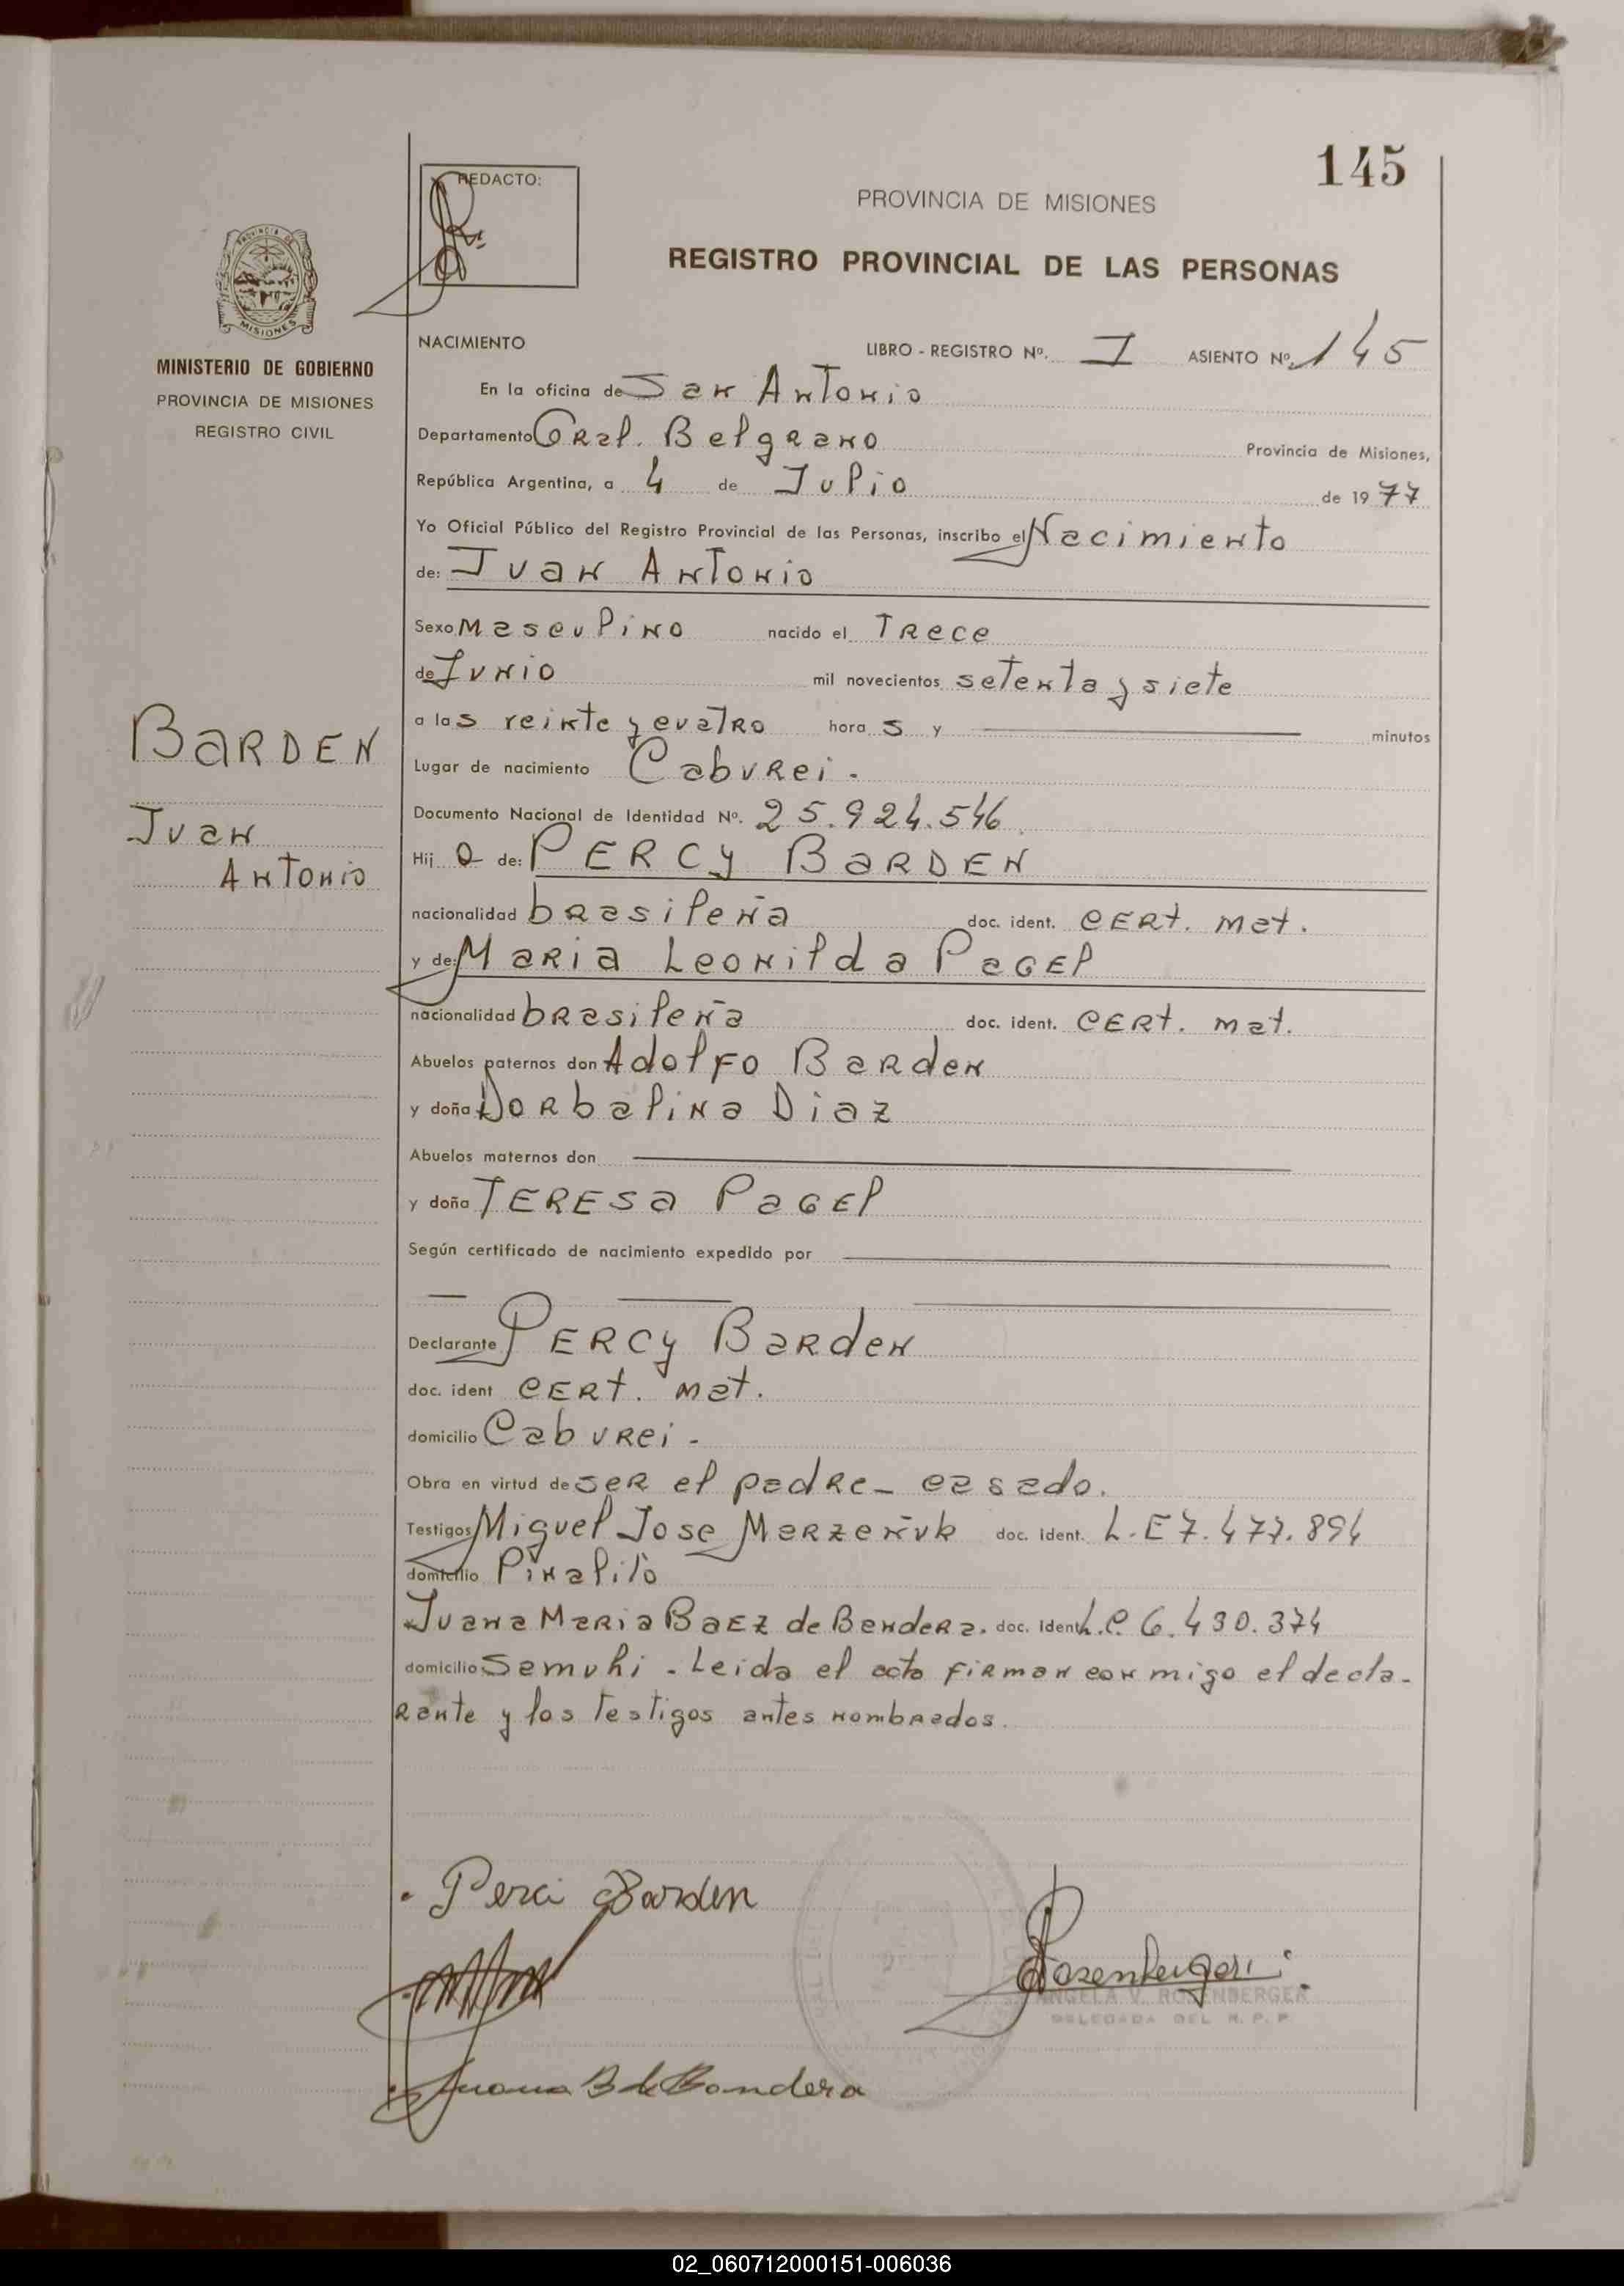 145
REDACTO:
PROVINCIA DE MISIONES
REGISTRO PROVINCIAL DE LAS PERSONAS
PROVINCIA DE
MISIONES
MINISTERIO DE GOBIERNO
PROVINCIA DE MISIONES
REGISTRO CIVIL
BARDEN
Juan
Antonio
NACIMIENTO LIBRO - REGISTRO Nº. I ASIENTO Nº. 145
En la oficina de San Antonio
Departamento Gral. Belgrano Provincia de Misiones,
República Argentina, a 4 de Julio de 1977
Yo Oficial Público del Registro Provincial de las Personas, inscribo el Nacimiento
de: Juan Antonio
Sexo masculino nacido el Trece
de Junio mil novecientos setenta y siete
a las veinte y cuatro horas y — minutos
Lugar de nacimiento Caburei.
Documento Nacional de Identidad Nº. 25.924.546
Hijo de: PERCY BARDEN
nacionalidad brasileña doc. ident. CERT. mat.
y de: Maria Leonilda Pagel
nacionalidad brasileña doc. ident. CERT. mat.
Abuelos paternos don Adolfo Barden
y doña Dorbalina Diaz
Abuelos maternos don —
y doña TERESA PAGEL
Según certificado de nacimiento expedido por —
— — —
Declarante PERCY Barden
doc. ident CERT. mat.
domicilio Caburei -
Obra en virtud de ser el padre - casado.
Testigos Miguel Jose Merzeñuk doc. ident. L.E 7.477.894
domicilio Piñalito
Juana Maria Baez de Bendera. doc. ident L.C. 6.430.374
domicilio Samuhi - Leida el acta firman conmigo el decla-
rante y los testigos antes nombrados.
Perci Barden
Rosenberger
ANGELA V. ROSENBERGER
DELEGADA DEL R. P. P
Juana B de Bandera
02_060712000151-006036